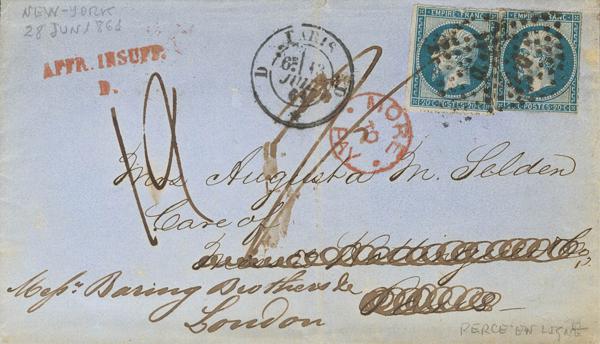 NEW-YORK
28 JUN 1861
AFFR. INSUFF.
D.
PARIS
D
EMPIRE FRANC
20 C POSTES 20 C
EMPIRE FRANC
POSTES 20 C
MORE
TO
PAY
12
Mrs Augusta M. Selden
Care of
Messrs Baring Brothers &c
London
PERCE EN LIGNE